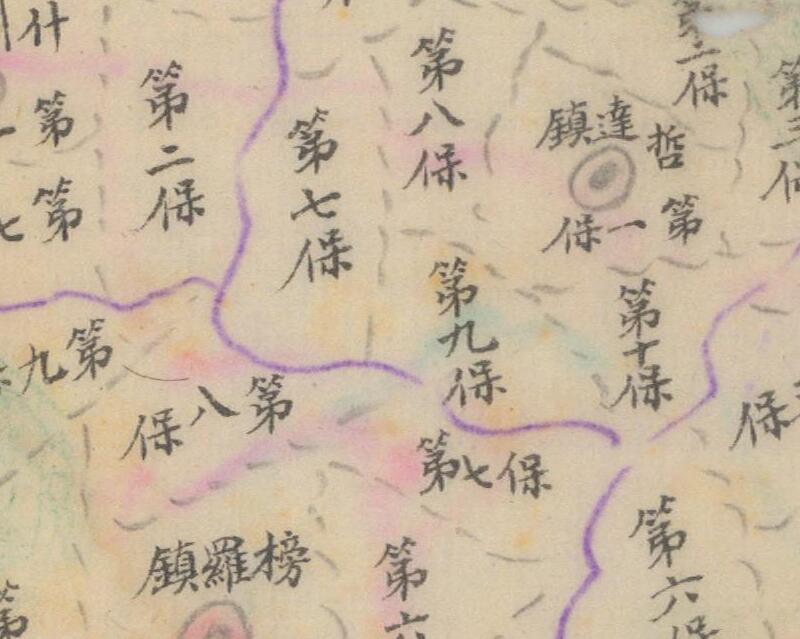 什
第二保
第七保
第八保
哲達鎮
第一保
第三
第
第
七
第九保
第十保
第九
第八保
第七保
保
榜羅鎮
第六
第六保
第